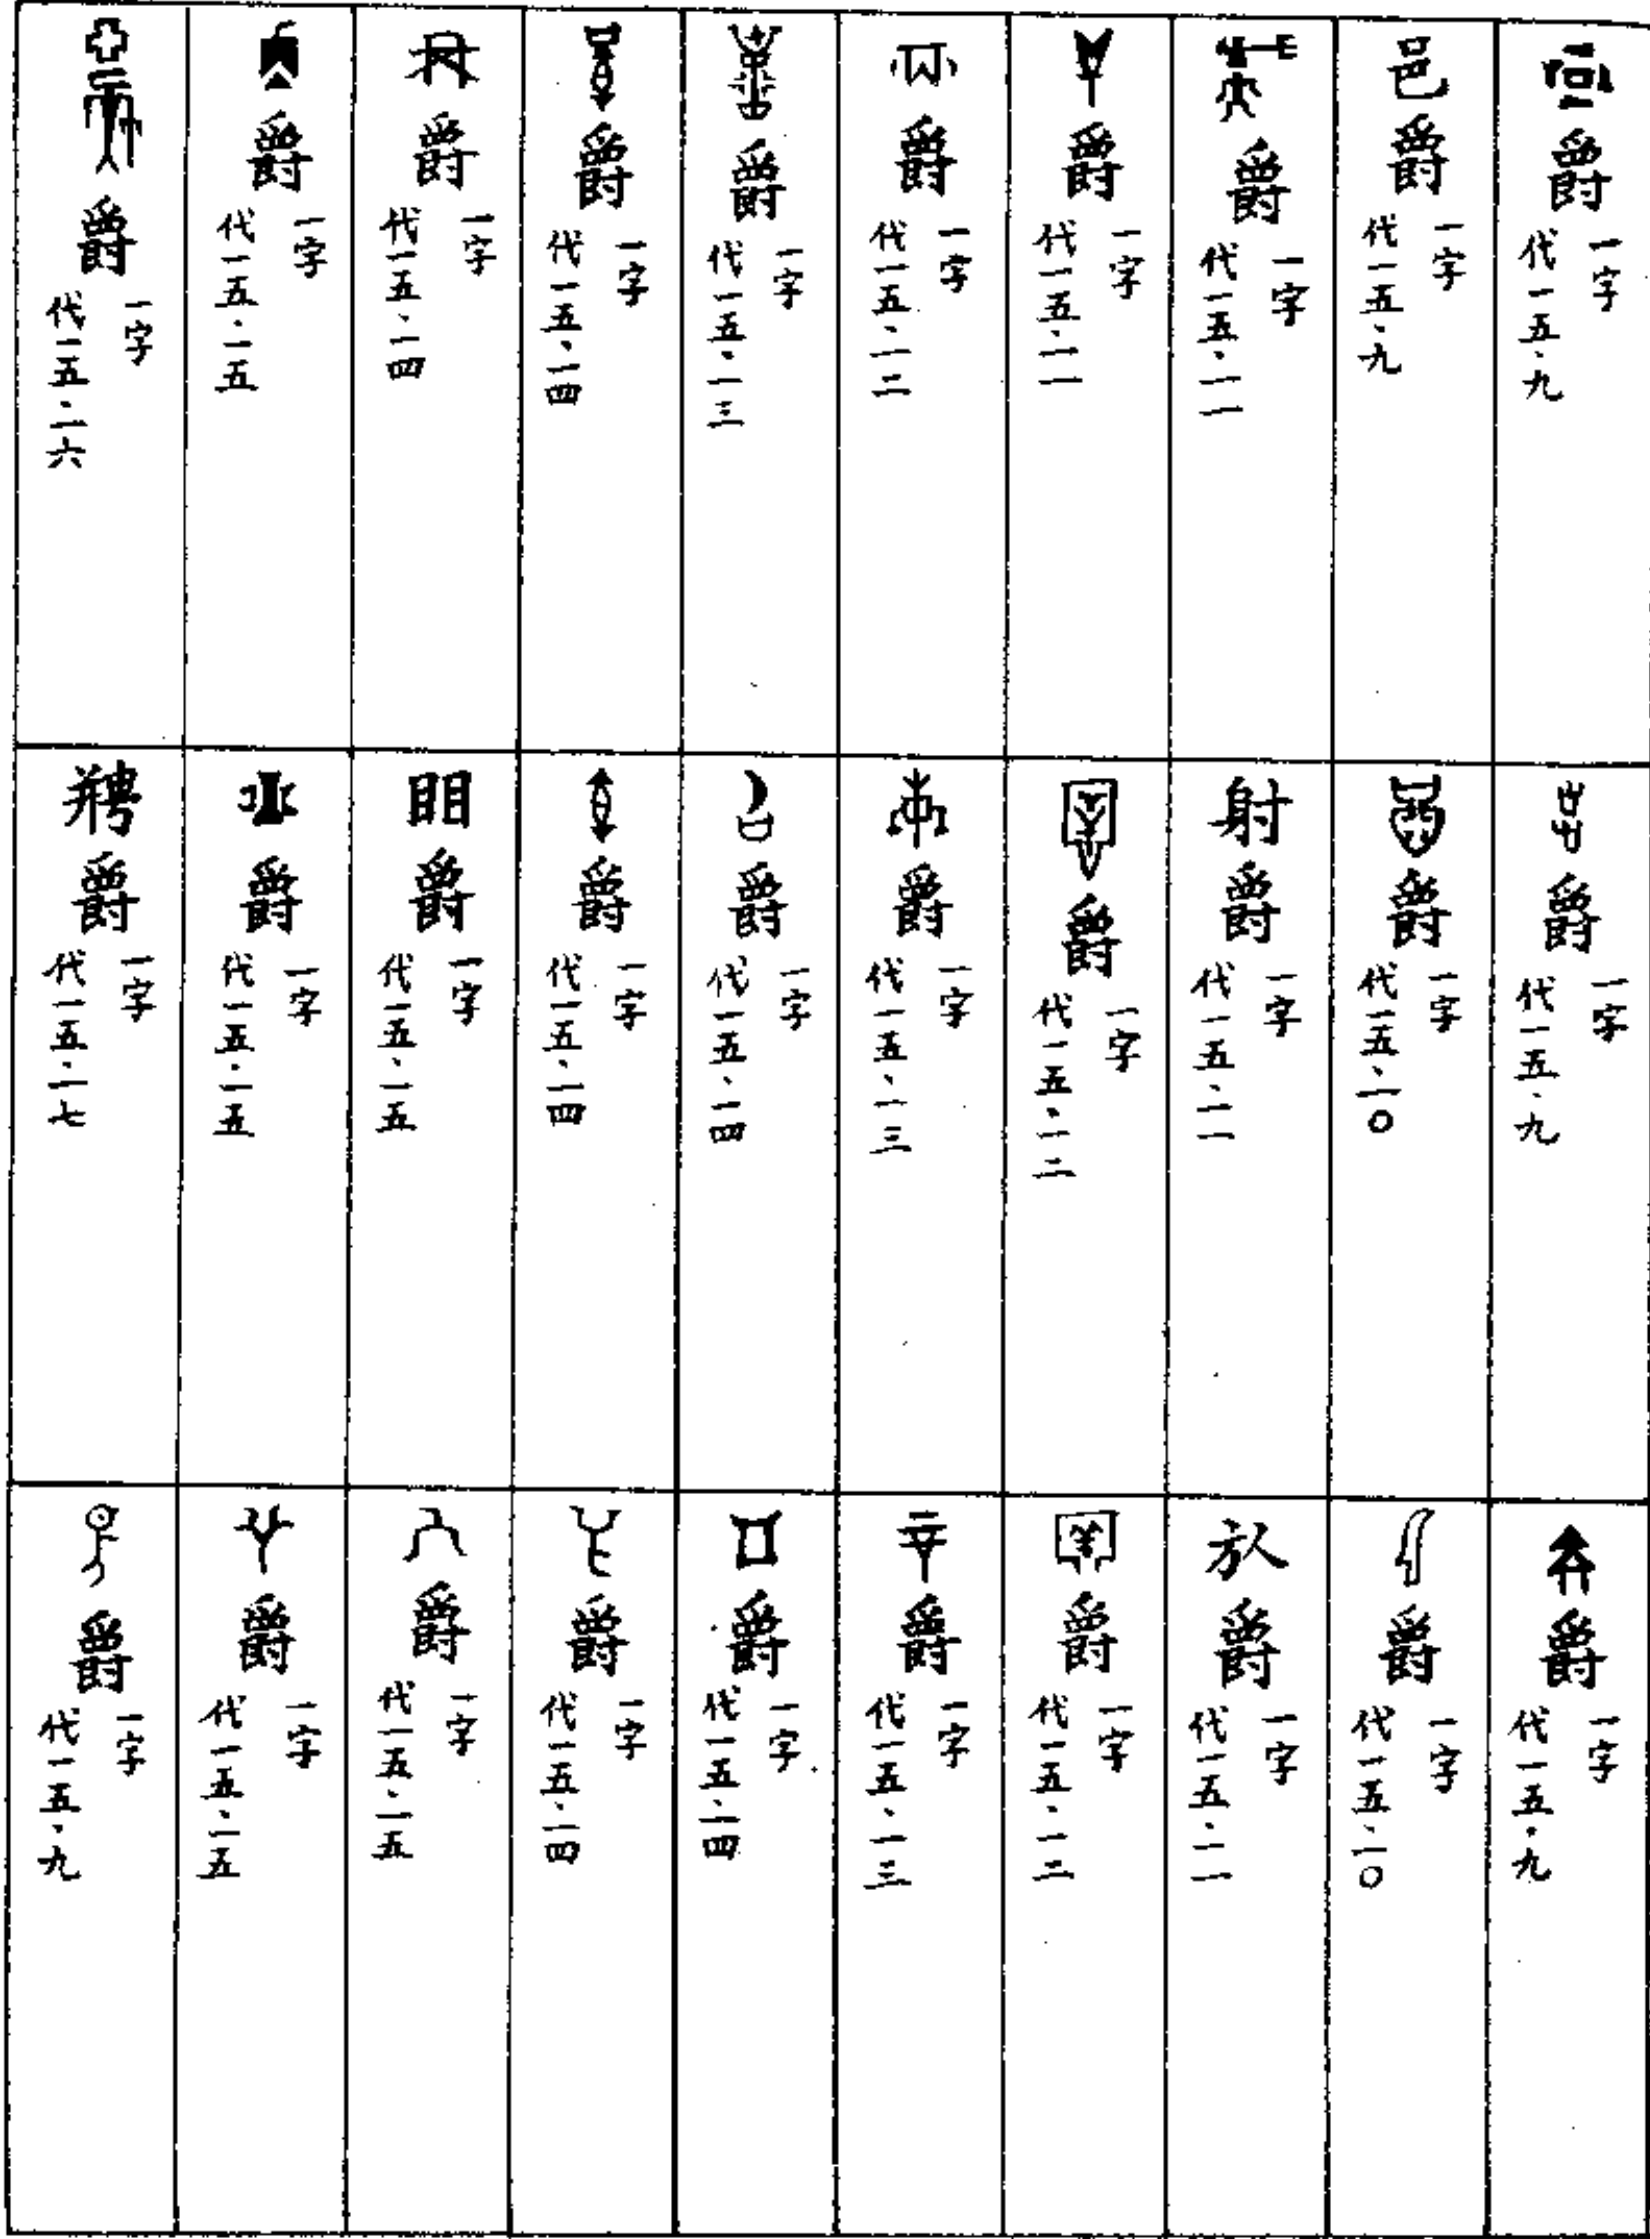 爵 一字 代一五·九
爵 一字 代一五·九
爵 一字 代一五·九
邑爵 一字 代一五·九
爵 一字 代一五·一〇
爵 一字 代一五·一〇
爵 一字 代一五·一一
射爵 一字 代一五·一一
㫃爵 一字 代一五·一一
爵 一字 代一五·一一
爵 一字 代一五·一二
爵 一字 代一五·一二
爵 一字 代一五·一二
爵 一字 代一五·一三
爵 一字 代一五·一三
爵 一字 代一五·一三
爵 一字 代一五·一四
爵 一字 代一五·一四
爵 一字 代一五·一四
爵 一字 代一五·一四
爵 一字 代一五·一四
爵 一字 代一五·一四
䀠爵 一字 代一五·一五
爵 一字 代一五·一五
爵 一字 代一五·一五
爵 一字 代一五·一五
爵 一字 代一五·一五
爵 一字 代一五·一六
爵 一字 代一五·一七
爵 一字 代一五·九